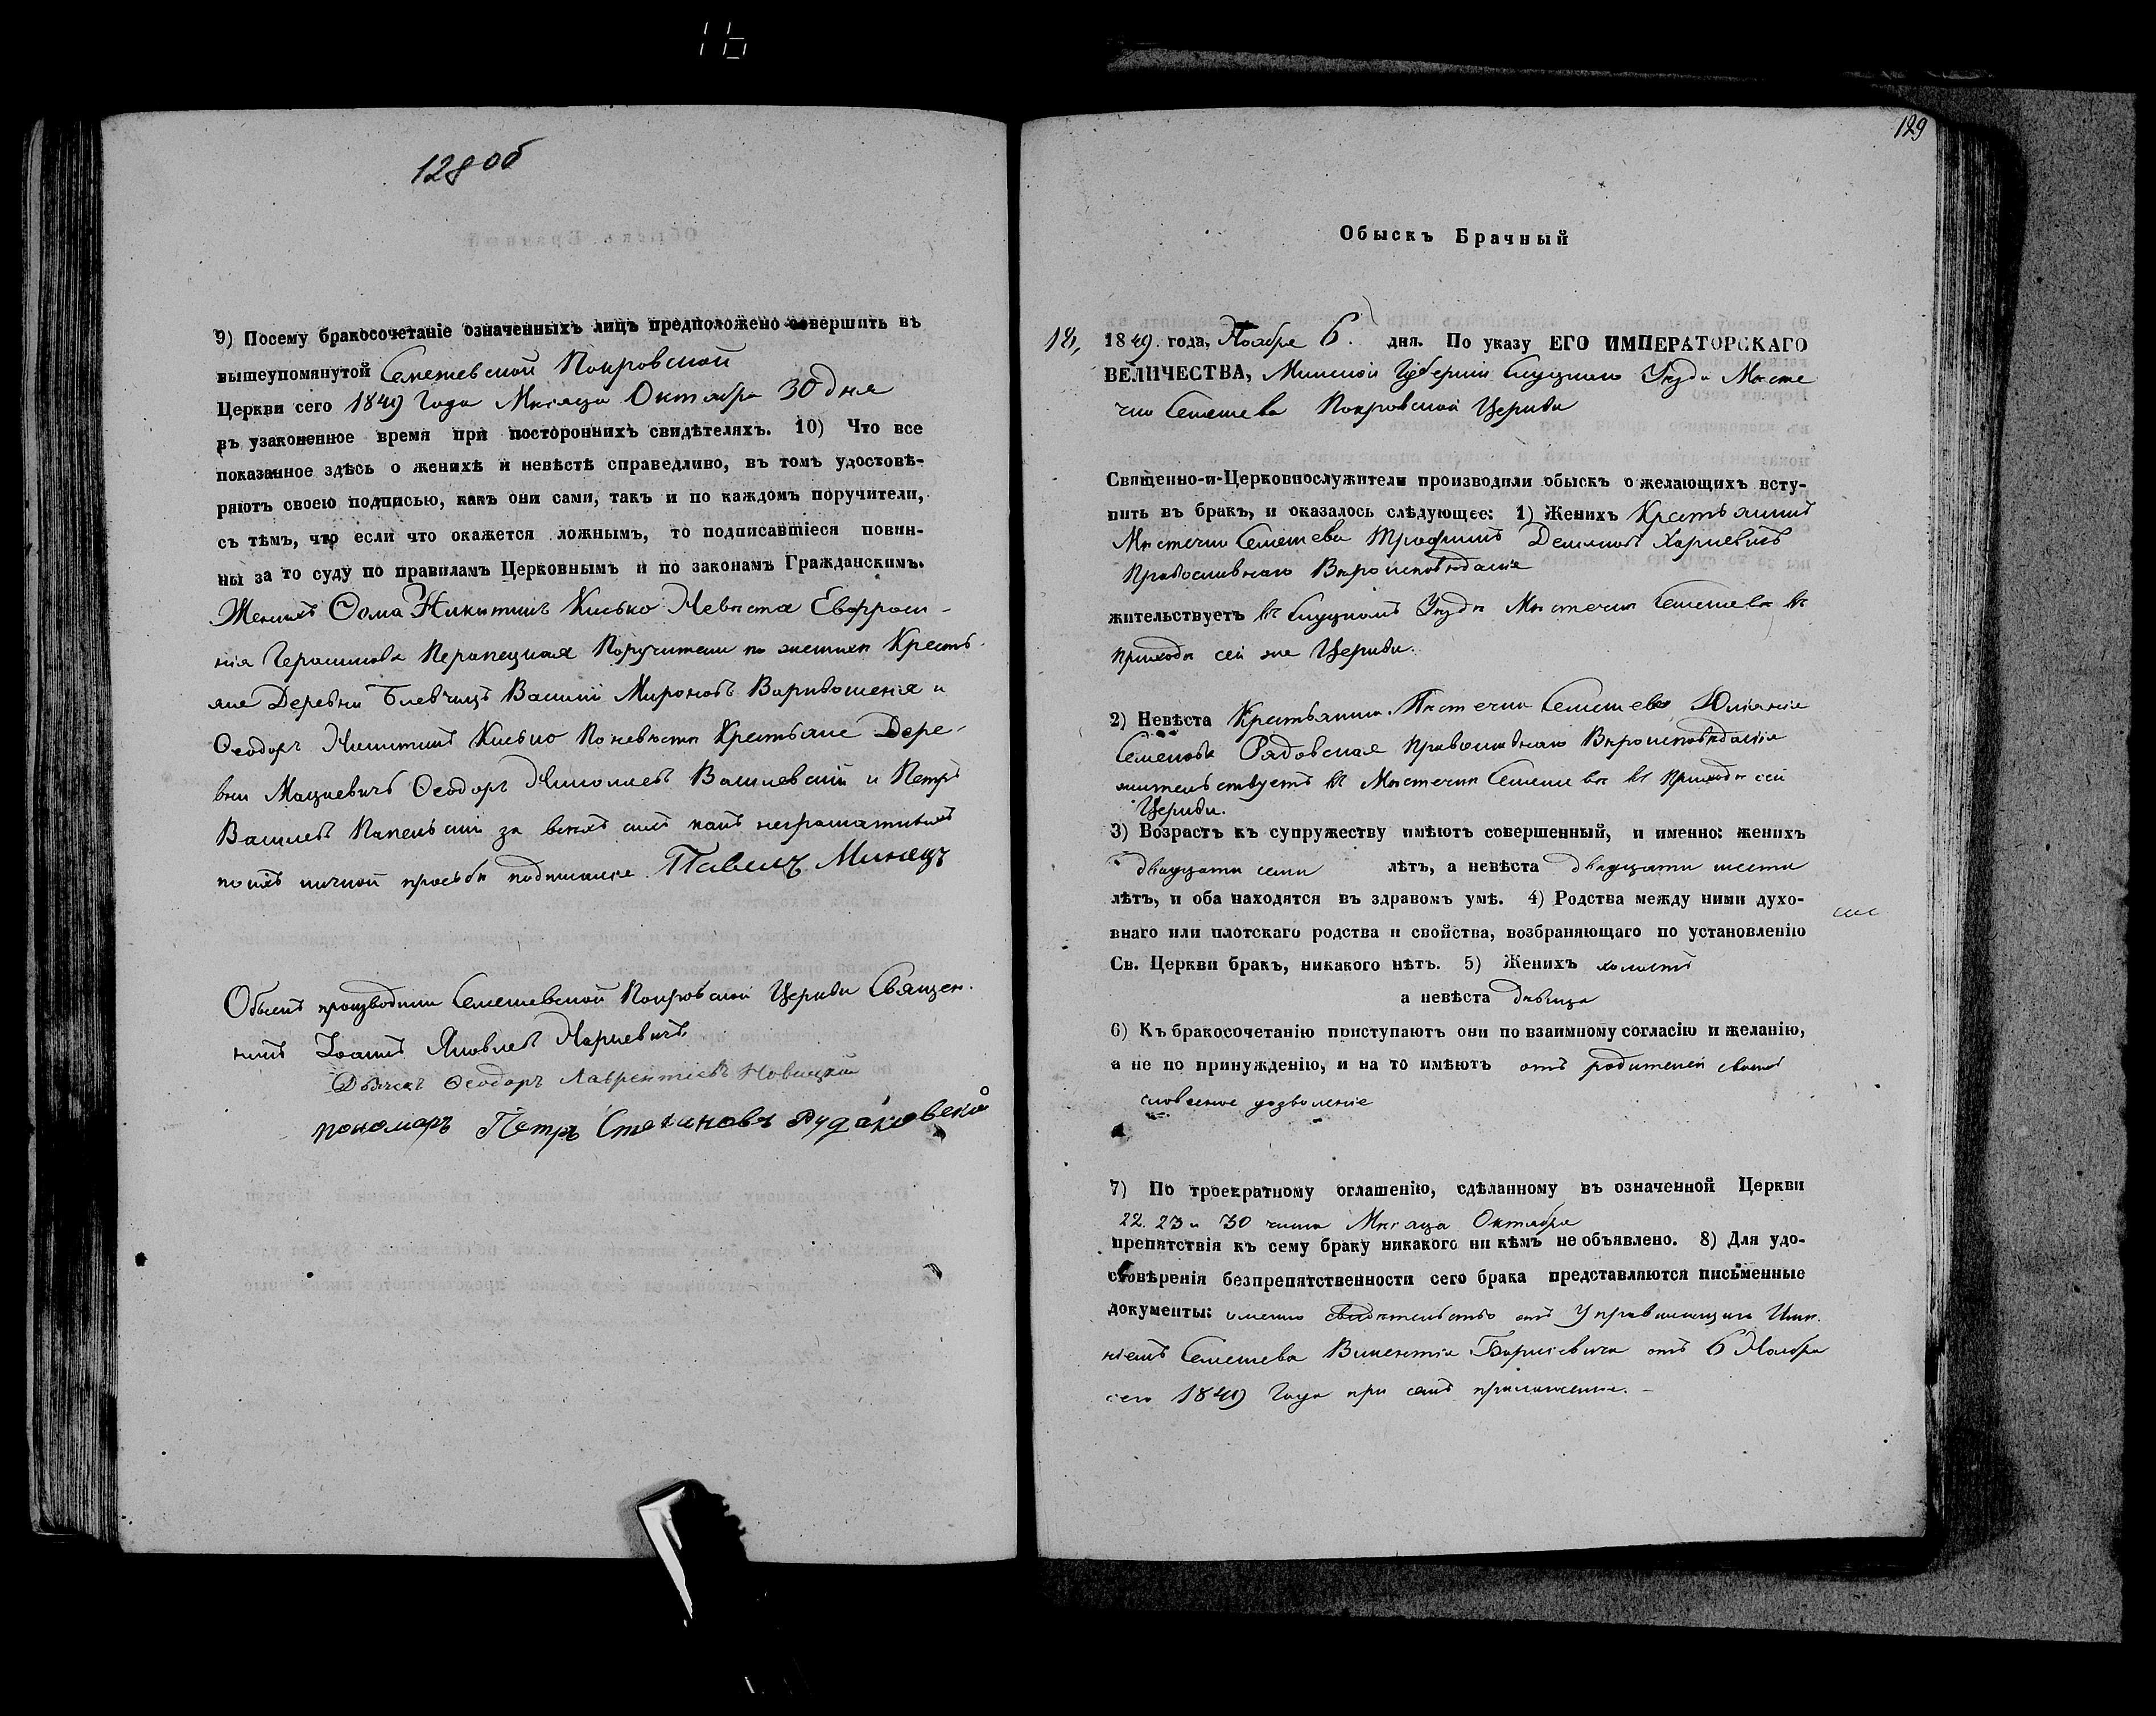 128 об
9) Посему бракосочетаніе означенныхъ лицъ предположено совершить въ
вышеупомянутой Семежевской Покровской
Церкви сего 1849 Года Месяца Октября 30 дня
въ узаконенное время при постороннихъ свидѣтеляхъ. 10) Что все
показанное здѣсь о женихѣ и невѣстѣ справедливо, въ томъ удостовѣ-
ряютъ своею подписью, какъ они сами, такъ и по каждомъ поручители,
съ тѣмъ, что если что окажется ложнымъ, то подписавшіеся повин-
ны за то суду по правиламъ Церковнымъ и по законамъ Гражданскимъ.
Женихъ Фома Никитинъ Кисько Невѣста Евфроси-
нія Герасимова Поручители по женихѣ Кресть-
яне Деревни Василій Мироновъ и
Ѳеодоръ Никитинъ Кисько По невѣсти Крестьяне Дере-
вни Мацкевичъ Ѳеодоръ Николаевъ Василевскій и Петръ
Василевъ за всѣхъ сихъ какъ неграматныхъ
по ихъ личной прозьбѣ подписался Павелъ Минецъ
Обыскъ производили Семежевской Покровской Церкви Священ-
никъ Іоаннъ Яковлевъ
Дьячекъ Ѳеодоръ Лаврентіевъ Новицкій
пономаръ Петръ Степановъ Рудаковскій
129
Обыскъ Брачный
1849. года, Ноября 6. дня. По указу ЕГО ИМПЕРАТОРСКАГО
ВЕЛИЧЕСТВА, Минской Губерніи Слуцкаго Уѣзда Мѣсте
чка Семежева Покровской Церкви
Священно-и-Церковпослужители производили обыскъ о желающихъ всту-
пить въ бракъ, и оказалось слѣдующее: 1) Женихъ Крестьянинъ
Мѣстечка Семежева Трофимъ Демьяновъ Харкевичъ
Православнаго Вѣроисповѣданія
жительствуетъ въ Слуцкомъ Уѣздѣ Мѣстечкѣ Семежевѣ въ
приходѣ сей же Церкви.
2) Невѣста Крестьянка Мѣстечка Семежева Юліанія
Семенова Рядовская Православнаго Вѣроисповѣданія
жительствуетъ въ Мѣстечкѣ Семежевѣ въ Приходѣ сей
Церкви.
3) Возрастъ къ супружеству имѣютъ совершенный, и именно: женихъ
двадцати семи лѣтъ, а невѣста двадцати шести
лѣтъ, и оба находятся въ здравомъ умѣ. 4) Родства между ними духо-
внаго или плотскаго родства и свойства, возбраняющаго по установленію
Св. Церкви бракъ, никакого нѣтъ. 5) Женихъ холостъ
а невѣста дѣвица
6) Къ бракосочетанію приступаютъ они по взаимному согласію и желанію,
а не по принужденію, и на то имѣютъ отъ родителей своихъ
словесное дозволеніе
7) По троекратному оглашенію, сдѣланному въ означенной Церкви
22. 23 и 30 числа Мѣсяца Октября
препятствія къ сему браку никакого ни кѣмъ не объявлено. 8) Для удо-
стовѣренія безпрепятственности сего брака представляются письменные
документы: именно свидѣтельство отъ Управляющаго Имѣ-
ніемъ Семежева Викентія отъ 6 Ноября
сего 1849 Года при семъ приложенное.